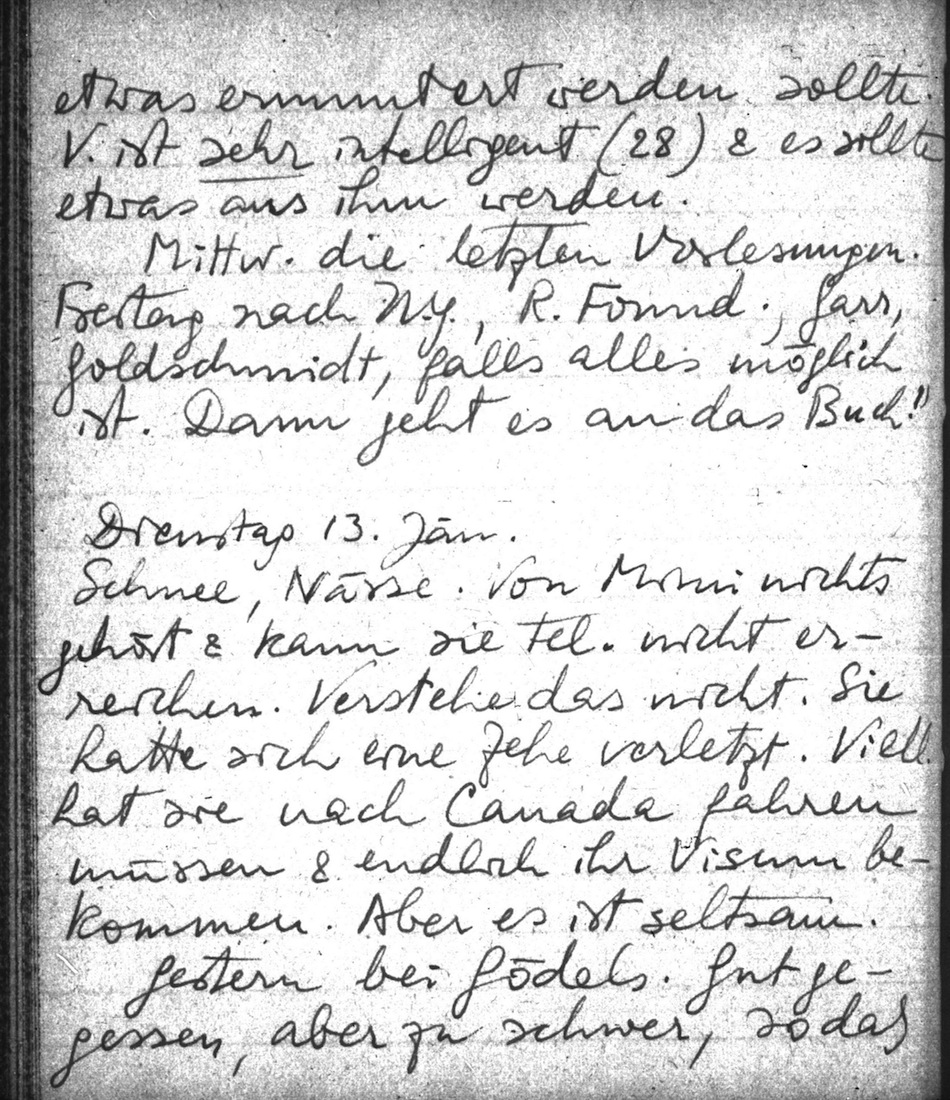 etwas ermuntert werden sollte.
V. ist sehr intelligent (28) & es sollte
etwas aus ihm werden.
Mittw. die letzten Vorlesungen.
Freitag nach N.Y., R. Found.,
Goldschmidt, falls alles möglich
ist. Dann geht es an das Buch!"
Dienstag 13. Jän.
Schnee, Nässe. Von Mimi nichts
gehört & kann sie Tel. nicht er-
reichen. Verstehe das nicht. Sie
hatte sich eine Zehe verletzt. Viell.
hat sie nach Canada fahren
müssen & endlich ihr Visum be-
kommen. Aber es ist seltsam.
Gestern bei Gödels. Gut ge-
gessen, aber zu schwer, sodaß